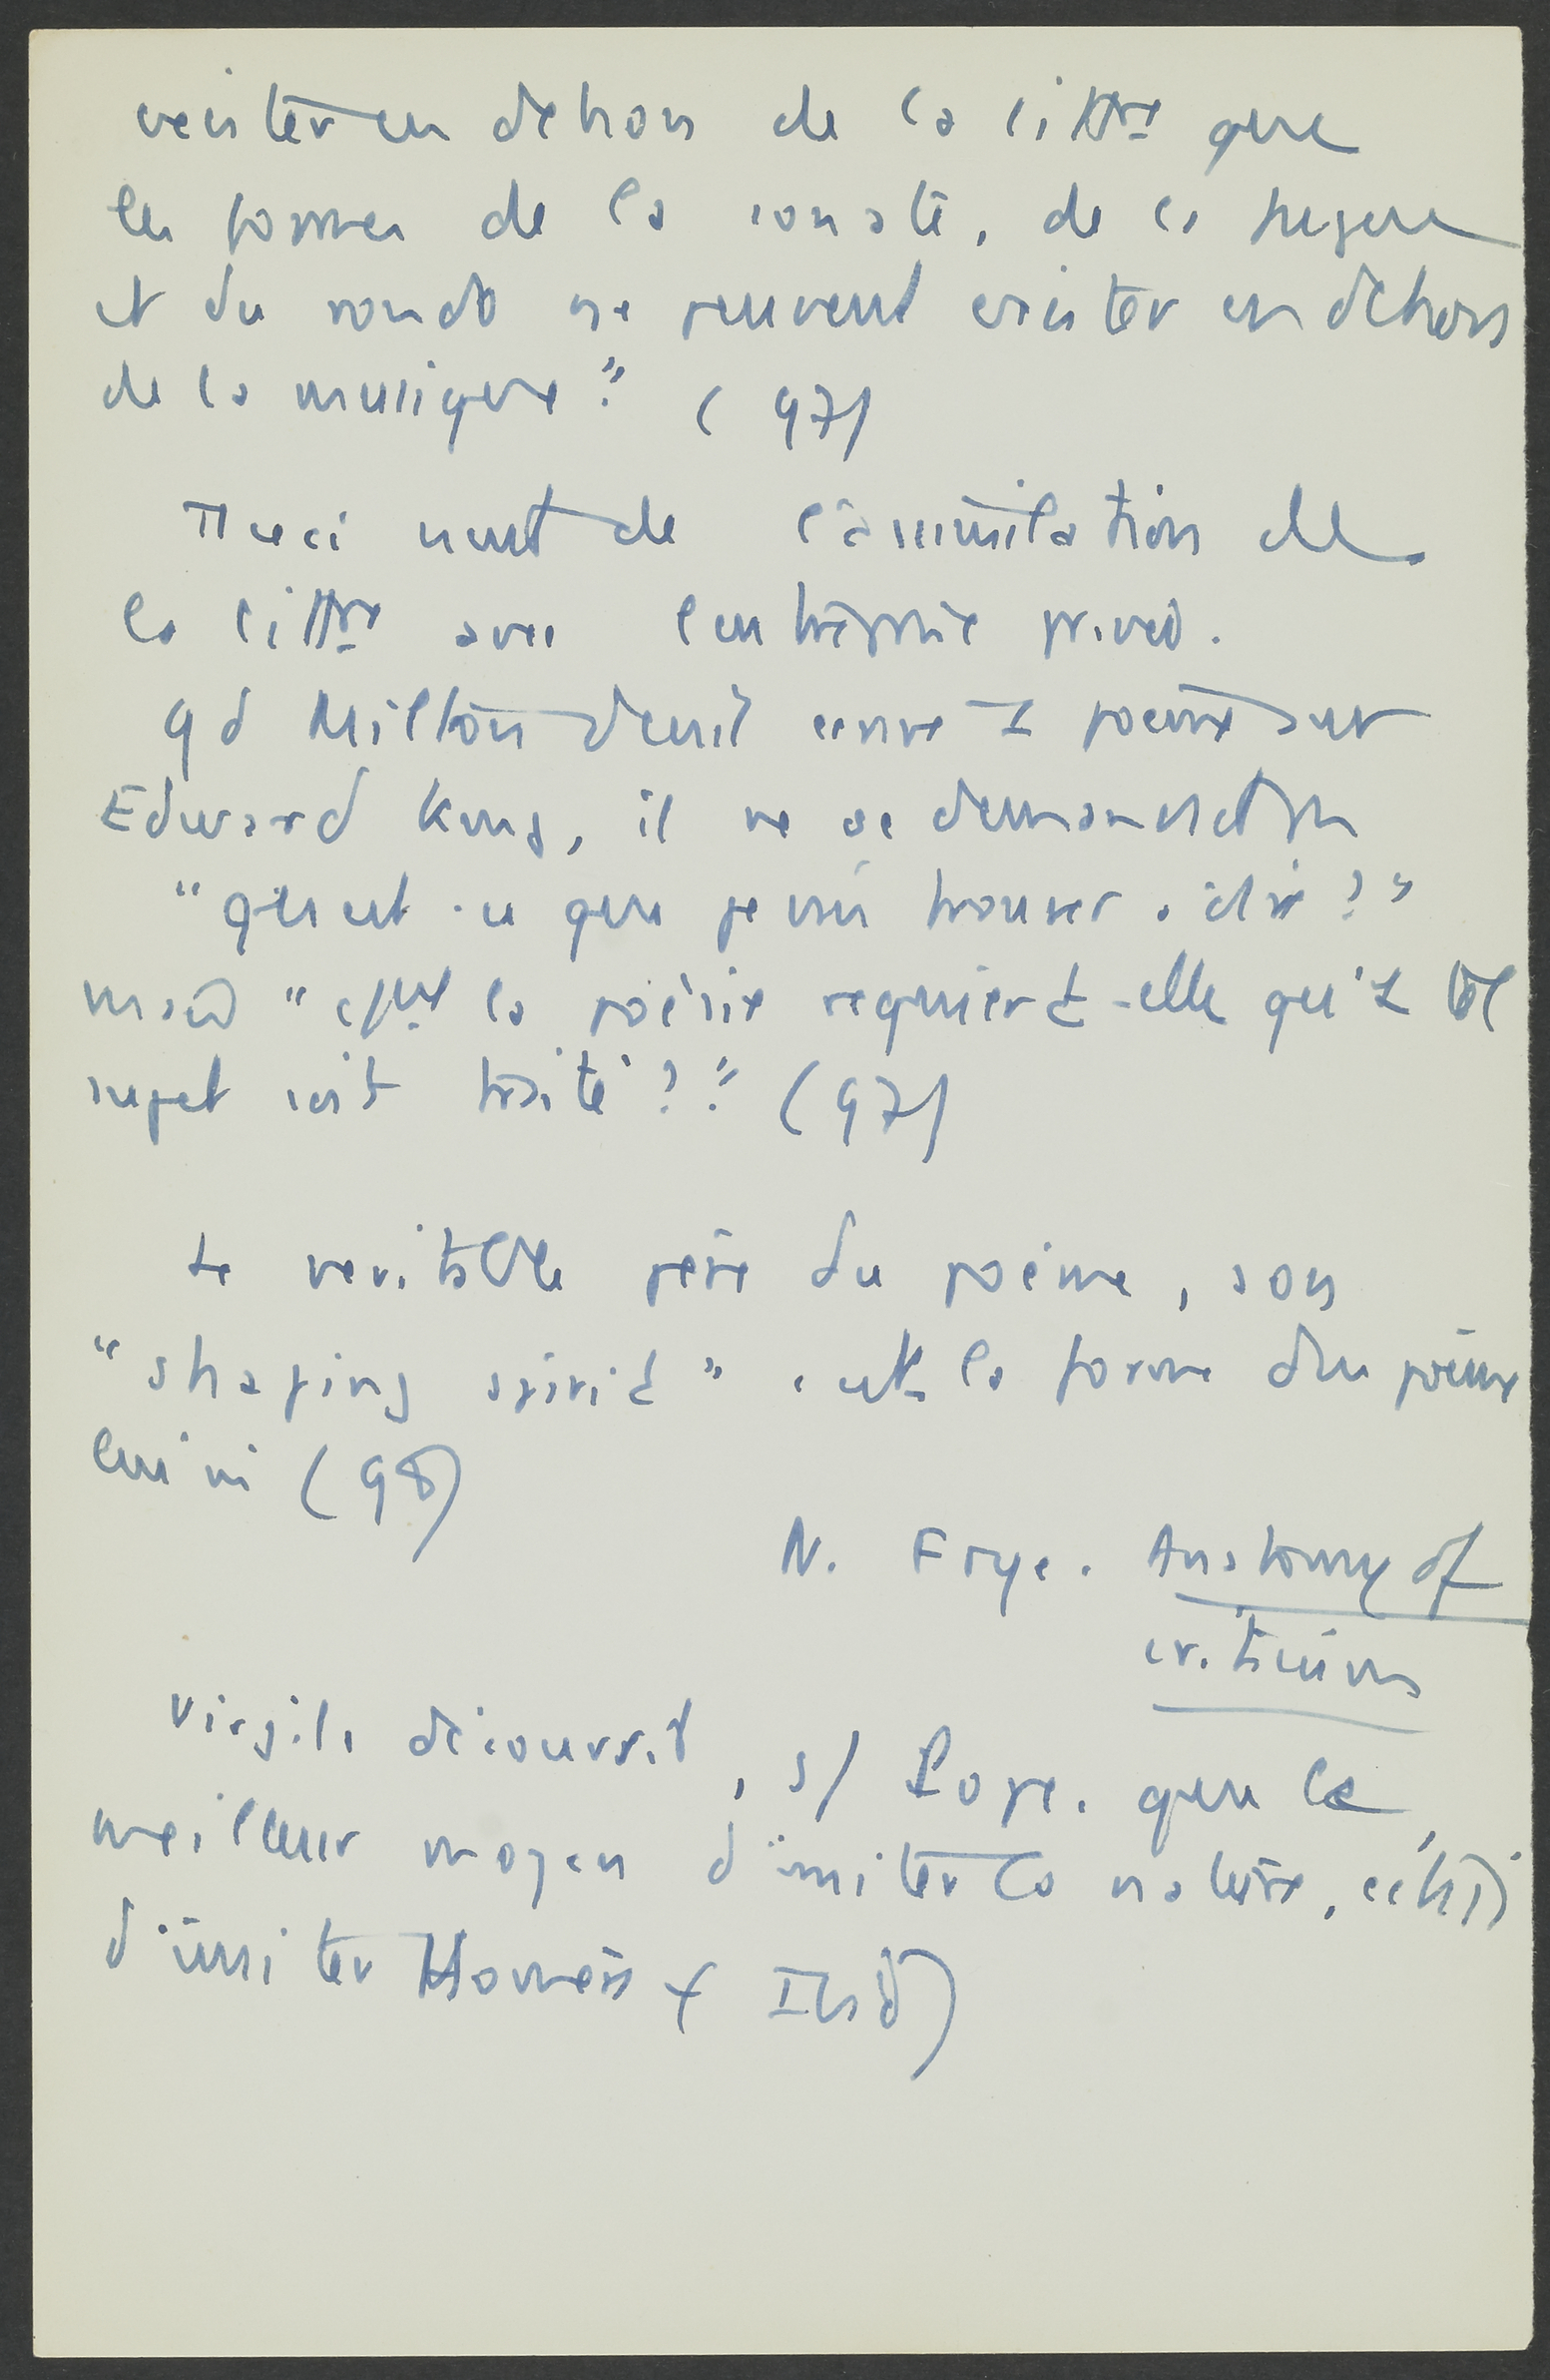 exister en dehors de la littre que
les formes de la sonate, de la fugue
et du rondo ne peuvent exister en dehors
de la musique". (97)
Tt ceci vient de l'assimilation de
la littre avec l'entreprise privée.
qd Milton écrit 1 poème sur
Edward King, il ne se demande pas
"qu'est-ce que je vais trouver à dire?"
mais "cmt la poésie requiert-elle qu'1 tel
sujet soit traité?". (97)
Le véritable père du poème, son
"shaping spirit" est la forme du poème
lui mi (98)
N. Frye. Anatomy of
criticism
Virgile découvrit, s/ Pope. que le
meilleur moyen d'imiter la nature, c'était
d'imiter Homère (Ibid)